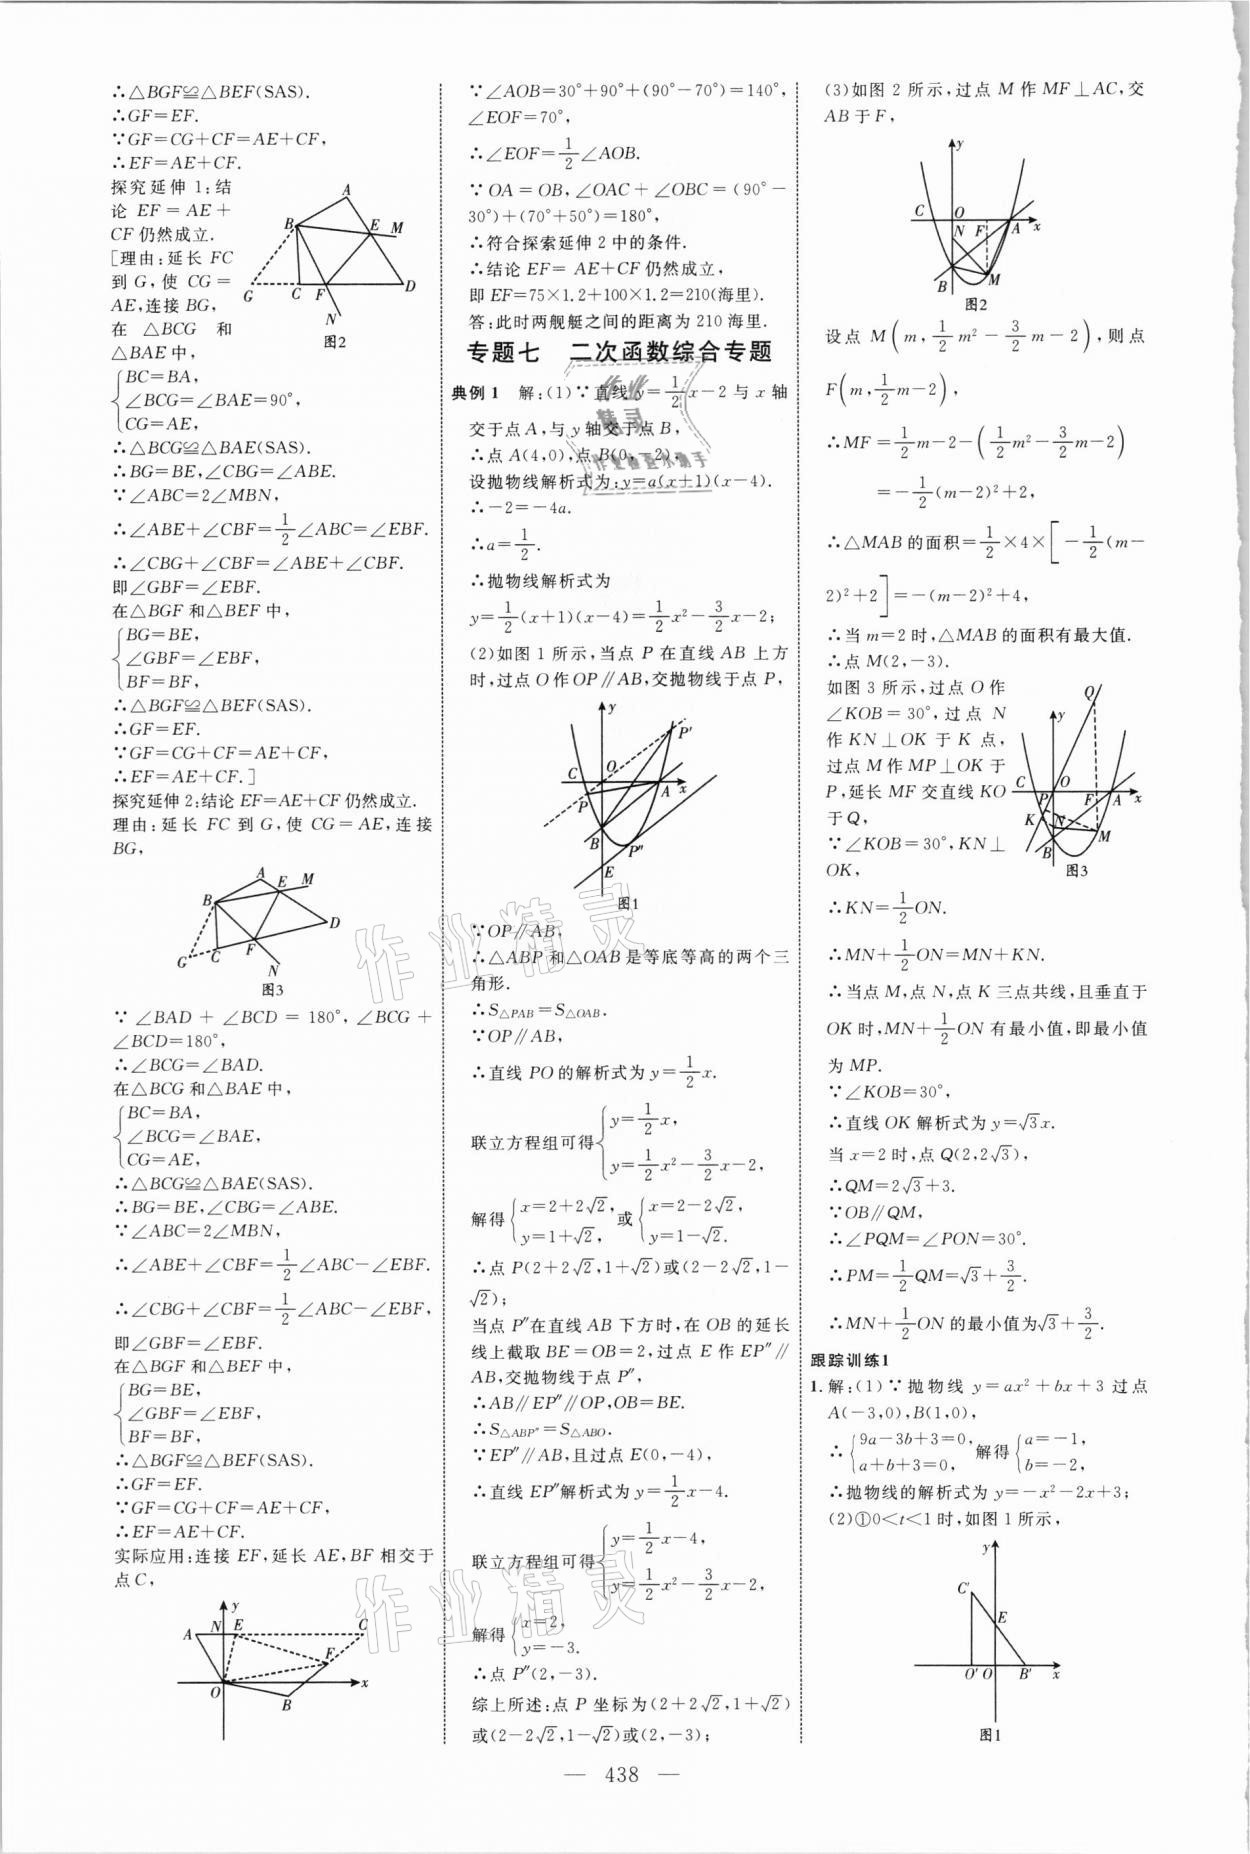 ∴△BGF≌△BEF(SAS).
∴GF=EF.
∵GF=CG+CF=AE+CF,
∴EF=AE+CF.
探究延伸 1:结
论 EF=AE+
CF 仍然成立.
[理由:延长 FC
到 G,使 CG=
AE,连接 BG,
在 △BCG 和
△BAE 中,
A
B
E
M
G
C
F
D
N
图2
{BC=BA,
∠BCG=∠BAE=90°,
CG=AE,
∴△BCG≌△BAE(SAS).
∴BG=BE,∠CBG=∠ABE.
∵∠ABC=2∠MBN,
∴∠ABE+∠CBF=1/2∠ABC=∠EBF.
∴∠CBG+∠CBF=∠ABE+∠CBF.
即∠GBF=∠EBF.
在△BGF 和△BEF 中,
{BG=BE,
∠GBF=∠EBF,
BF=BF,
∴△BGF≌△BEF(SAS).
∴GF=EF.
∵GF=CG+CF=AE+CF,
∴EF=AE+CF.]
探究延伸 2:结论 EF=AE+CF 仍然成立.
理由:延长 FC 到 G,使 CG=AE,连接
BG,
A
E
M
B
D
G
C
F
N
图3
∵∠BAD+∠BCD=180°,∠BCG+
∠BCD=180°,
∴∠BCG=∠BAD.
在△BCG 和△BAE 中,
{BC=BA,
∠BCG=∠BAE,
CG=AE,
∴△BCG≌△BAE(SAS).
∴BG=BE,∠CBG=∠ABE.
∵∠ABC=2∠MBN,
∴∠ABE+∠CBF=1/2∠ABC-∠EBF.
∴∠CBG+∠CBF=1/2∠ABC-∠EBF,
即∠GBF=∠EBF.
在△BGF 和△BEF 中,
{BG=BE,
∠GBF=∠EBF,
BF=BF,
∴△BGF≌△BEF(SAS).
∴GF=EF.
∵GF=CG+CF=AE+CF,
∴EF=AE+CF.
实际应用:连接 EF,延长 AE,BF 相交于
点 C,
y
A
N
E
C
F
O
B
x
∵∠AOB=30°+90°+(90°-70°)=140°,
∠EOF=70°,
∴∠EOF=1/2∠AOB.
∵OA=OB,∠OAC+∠OBC=(90°-
30°)+(70°+50°)=180°,
∴符合探索延伸 2 中的条件.
∴结论 EF= AE+CF 仍然成立,
即 EF=75×1.2+100×1.2=210(海里).
答:此时两舰艇之间的距离为 210 海里.
专题七 二次函数综合专题
典例 1 解:(1)∵直线 y=1/2x-2 与 x 轴
交于点 A,与 y 轴交于点 B,
∴点 A(4,0),点 B(0,-2).
设抛物线解析式为:y=a(x+1)(x-4).
∴-2=-4a.
∴a=1/2.
∴抛物线解析式为
y=1/2(x+1)(x-4)=1/2x²-3/2x-2;
(2)如图 1 所示,当点 P 在直线 AB 上方
时,过点 O 作 OP∥AB,交抛物线于点 P,
y
P′
C
O
A
x
P
B
P″
E
图1
∵OP∥AB,
∴△ABP 和△OAB 是等底等高的两个三
角形.
∴S△PAB=S△OAB.
∵OP∥AB,
∴直线 PO 的解析式为 y=1/2x.
联立方程组可得{y=1/2x,
y=1/2x²-3/2x-2,
解得{x=2+2√2,y=1+√2,或{x=2-2√2,y=1-√2.
∴点 P(2+2√2,1+√2)或(2-2√2,1-
√2);
当点 P″在直线 AB 下方时,在 OB 的延长
线上截取 BE=OB=2,过点 E 作 EP″∥
AB,交抛物线于点 P″,
∴AB∥EP″∥OP,OB=BE.
∴S△ABP″=S△ABO.
∵EP″∥AB,且过点 E(0,-4),
∴直线 EP″解析式为 y=1/2x-4.
联立方程组可得{y=1/2x-4,
y=1/2x²-3/2x-2,
解得{x=2,
y=-3.
∴点 P″(2,-3).
综上所述:点 P 坐标为(2+2√2,1+√2)
或(2-2√2,1-√2)或(2,-3);
(3)如图 2 所示,过点 M 作 MF⊥AC,交
AB 于 F,
y
C
O
N
F
A
x
B
M
图2
设点 M(m,1/2m²-3/2m-2),则点
F(m,1/2m-2),
∴MF=1/2m-2-(1/2m²-3/2m-2)
=-1/2(m-2)²+2,
∴△MAB 的面积=1/2×4×[-1/2(m-
2)²+2]=-(m-2)²+4,
∴当 m=2 时,△MAB 的面积有最大值.
∴点 M(2,-3).
如图 3 所示,过点 O 作
∠KOB=30°,过点 N
作 KN⊥OK 于 K 点,
过点 M 作 MP⊥OK 于
P,延长 MF 交直线 KO
于 Q,
∵∠KOB=30°,KN⊥
OK,
Q
y
C
O
P
F
A
x
K
N
M
B
图3
∴KN=1/2ON.
∴MN+1/2ON=MN+KN.
∴当点 M,点 N,点 K 三点共线,且垂直于
OK 时,MN+1/2ON 有最小值,即最小值
为 MP.
∵∠KOB=30°,
∴直线 OK 解析式为 y=√3x.
当 x=2 时,点 Q(2,2√3),
∴QM=2√3+3.
∵OB∥QM,
∴∠PQM=∠PON=30°.
∴PM=1/2QM=√3+3/2.
∴MN+1/2ON 的最小值为√3+3/2.
跟踪训练1
1.解:(1)∵抛物线 y=ax²+bx+3 过点
A(-3,0),B(1,0),
∴{9a-3b+3=0,a+b+3=0,解得{a=-1,b=-2,
∴抛物线的解析式为 y=-x²-2x+3;
(2)①0<t<1 时,如图 1 所示,
y
C′
E
O′
O
B′
x
图1
— 438 —
作业精灵
作业精灵